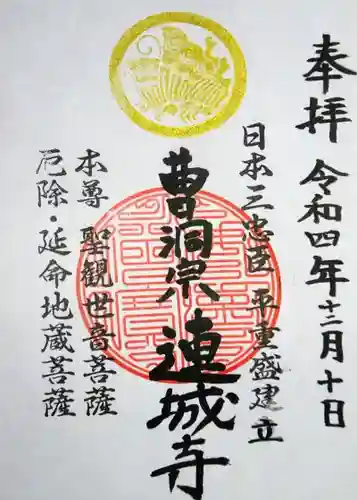 奉拝 令和四年十二月十日
日本三忠臣 平重盛建立
曹洞宗 連城寺
本尊 聖観世音菩薩
厄除・延命地蔵菩薩